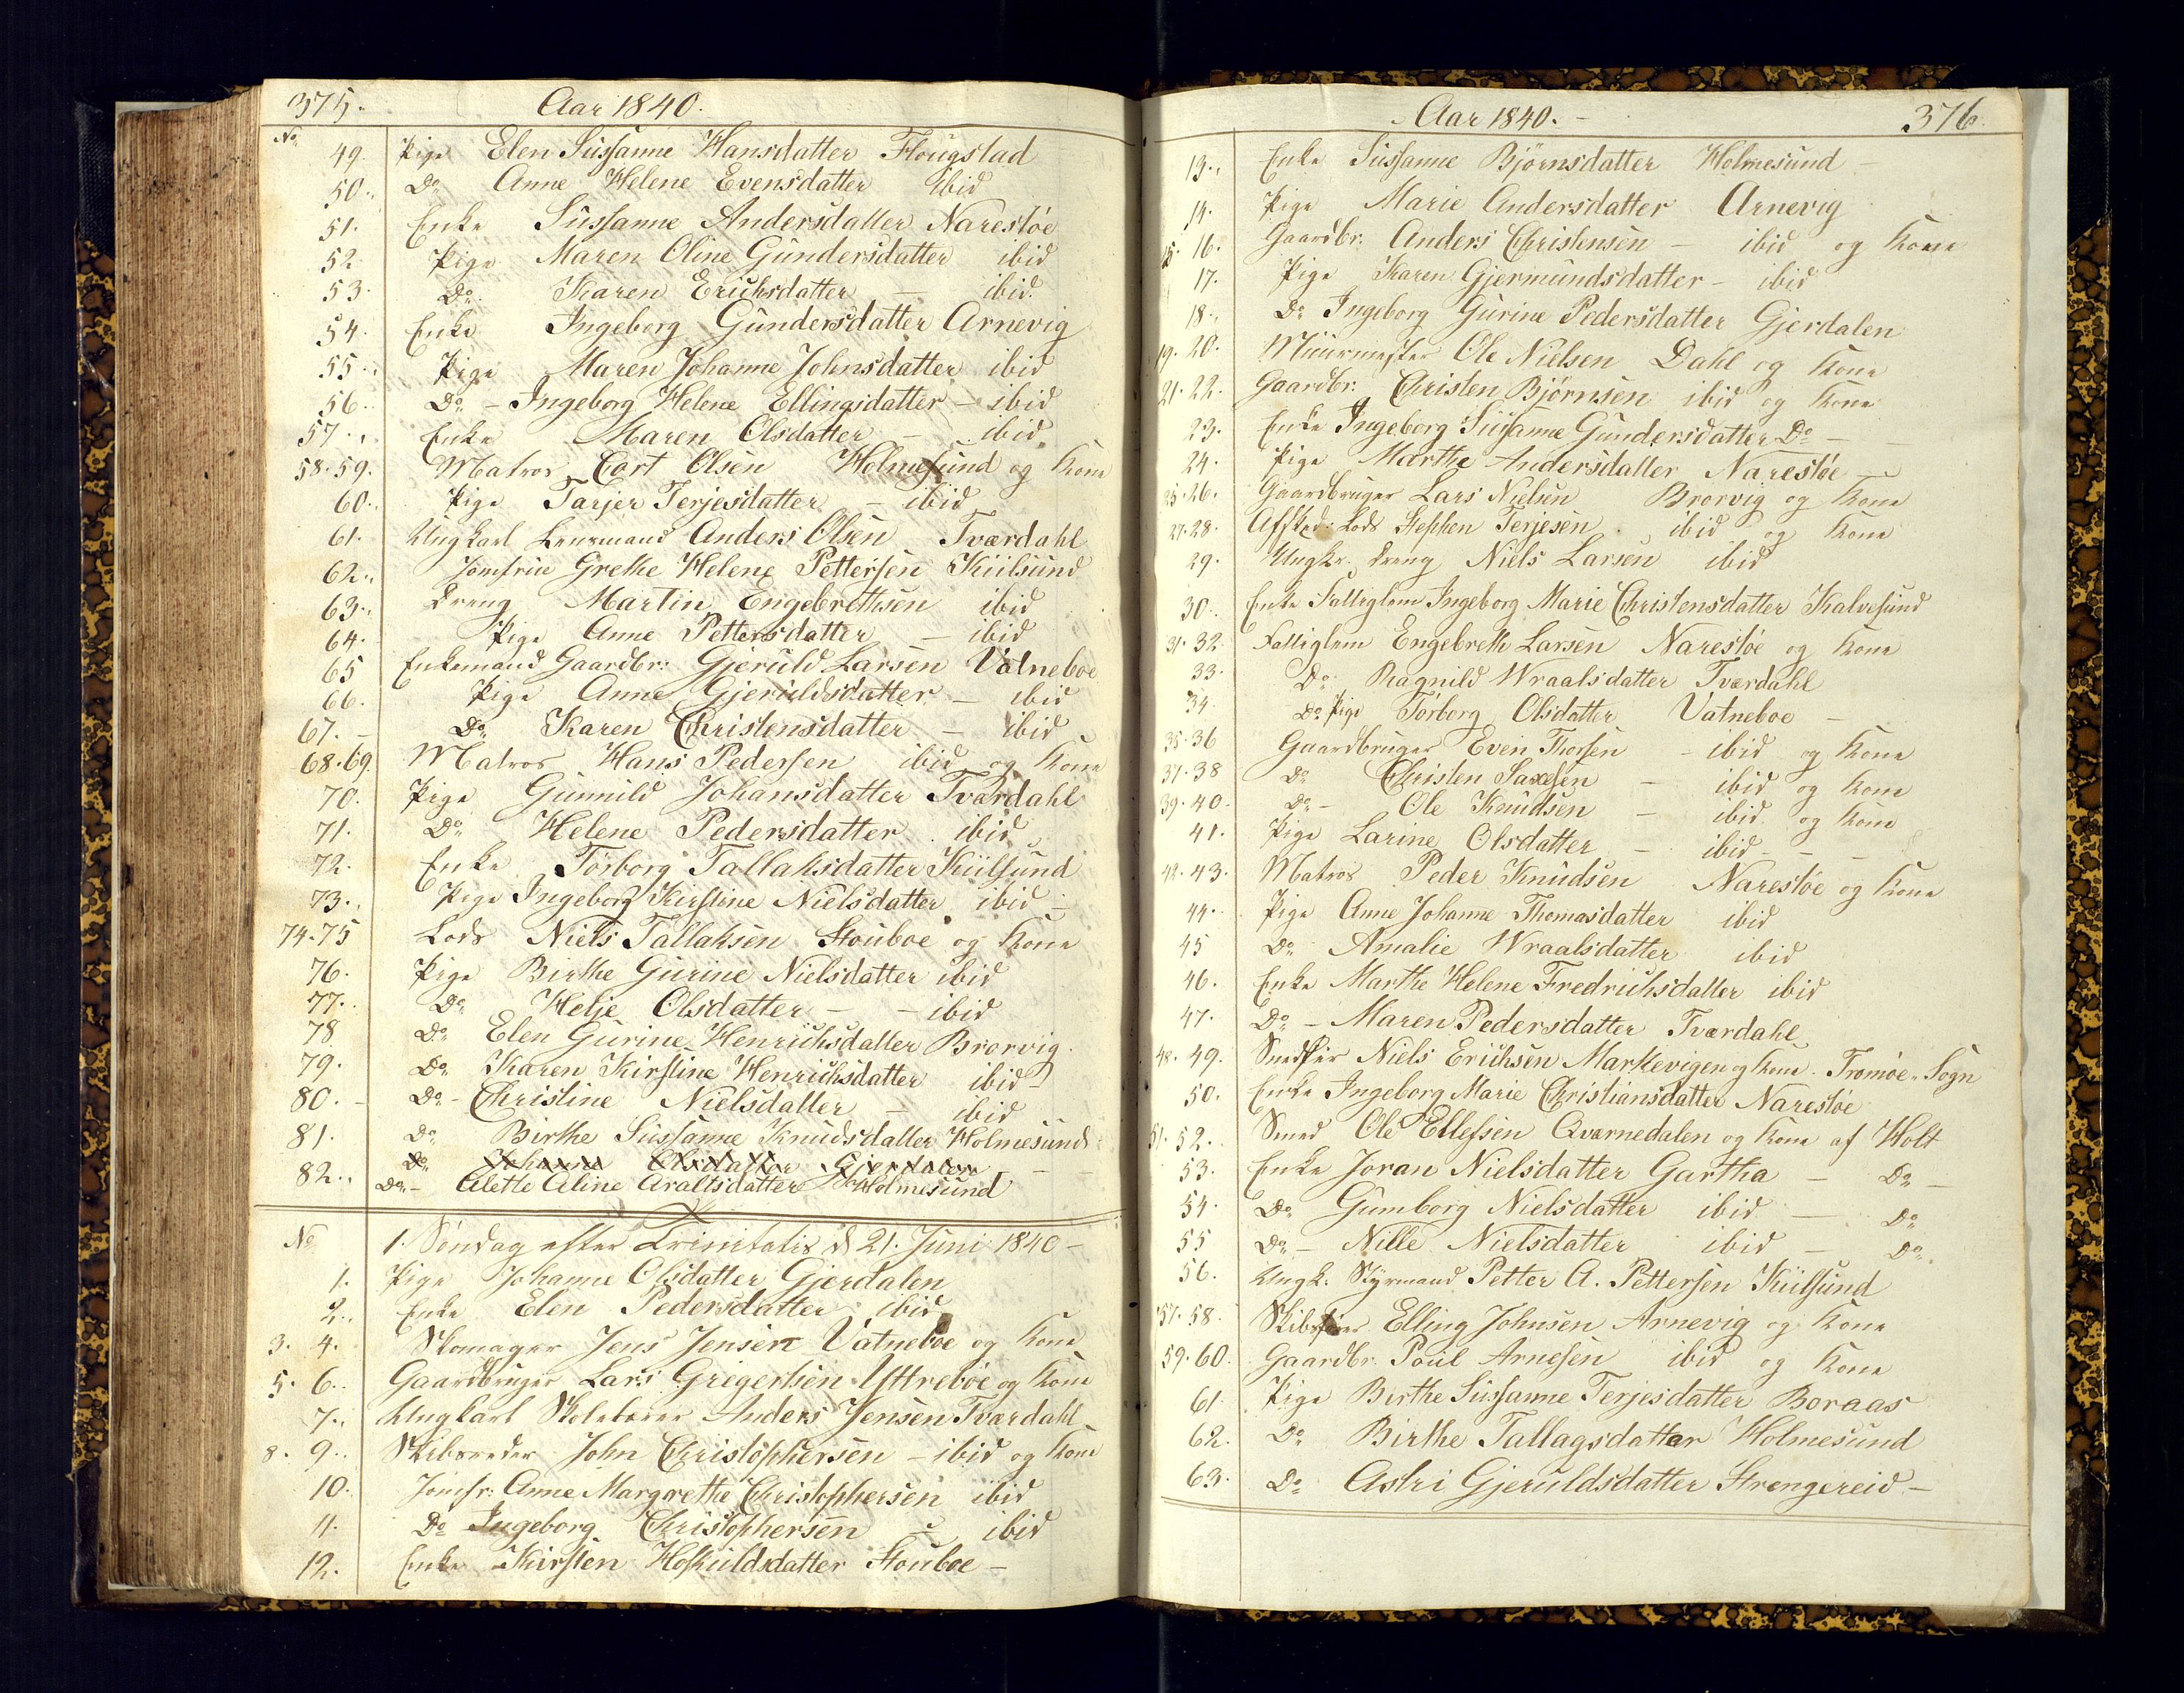 375. Aar 1840.
No
49. Pige Elen Sussanne Hansdatter Flougstad
50. Do Anne Helene Evensdatter ibid
51. Enke Sussanne Andersdatter Narestøe
52. Pige Maren Oline Gundersdatter ibid
53. Do Karen Erichsdatter – ibid.
54. Enke Ingeborg Gundersdatter Arnevig
55. Pige Maren Johanne Johnsdatter ibid
56. Do – Ingeborg Helene Ellingsdatter – ibid
57. Enke Maren Olsdatter – ibid.
58.59. Matros Cort Olsen Holmesund og Kone
60. Pige Tarjer Terjesdatter – ibid
61. Ungkarl Lensmand Anders Olsen Tværdahl
62. Jomfrue Grethe Helene Pettersen Kiilsund
63. Dreng Martin Engebrethsen ibid
64. Pige Anne Pettersdatter – ibid
65 Enkemand Gaardbr: Gjeruld Larsen Vatneboe
66. Pige Anne Gjeruldsdatter – ibid
67. – Do Karen Christensdatter – ibid
68.69. Matros Hans Pedersen ibid og Kone
70. Pige Gunnild Johansdatter Tværdahl
71. Do Helene Pedersdatter ibid
72. Enke Torborg Tallaksdatter Kiilsund
73. Pige Ingeborg Kirstine Nielsdatter ibid –
74-75 Lods Niels Tallaksen Stouboe og Kone
76. Pige Birthe Gurine Nielsdatter ibid
77. Do Helje Olsdatter – – ibid
78 Do Elen Gurine Henrichsdatter Brorvig.
79. Do Karen Kirstine Henrichsdatter ibid –
80. – Do – Christine Nielsdatter – ibid
81. Do Birthe Sussanne Knudsdatter Holmesund
Do Johanne Olsdatter Gjerdalen
82. Do – Alette Aline Araltsdatter Holmesund
No 1. Søndag efter Trinitatis d 21. Juni 1840 –
1. Pige Johanne Olsdatter Gjerdalen
2. Enke Elen Pedersdatter ibid
3. 4. Skomager Jens Jensen Vatneboe og Kone
5. 6. Gaardbruger Lars Gregersen Yttreboe og Kone
7. Ungkarl Skolelærer Anders Jensen Tværdahl
8. 9. Skibsreder John Christophersen – ibid og Kone
10. Jomfr: Anne Margrethe Christophersen ibid
11. Do Ingeborg Christophersen – ibid
12. Enke Kirsten Hoskuldsdatter Stouboe –
Aar 1840. – 376.
13. Enke Sussanne Bjørnsdatter Holmesund –
14. Pige Marie Andersdatter Arnevig
15. 16. Gaardbr. Anders Christensen – ibid og Kone
17. Pige Karen Gjermundsdatter – ibid
18. Do Ingeborg Gurine Pedersdatter Gjerdalen
19. 20. Muurmester Ole Nielsen Dahl og Kone
21.22. Gaardbr: Christen Bjørnsen ibid og Kone
23. Enke Ingeborg Susanne Gundersdatter Do –
24. Pige Marthe Andersdatter Narestøe –
25.26. Gaardbruger Lars Nielsen Brorvig og Kone
27.28. Afsked: Lods Stephen Terjesen. ibid og Kone
29. Ungk. Dreng Niels Larsen ibid
30. Enke Fattiglem Ingeborg Marie Christensdatter Kalvesund
31. 32 Fattiglem Engebreth Larsen Narestøe og Kone
33. Do Ragnild Wraalsdatter Tværdahl
34. Do Pige Torborg Olsdatter Vatneboe –
35.36 Gaardbruger Even Thorsen – ibid og Kone
37.38 Do Christen Saxesen – ibid og Kone
39.40. Do – Ole Knudsen – ibid og Kone
41. Pige Larine Olsdatter – ibid – –
42.43. Matros Peder Knudsen Narestøe og Kone
44. Pige Anne Johanne Thomasdatter ibid
45 Do Amalie Wraalsdatter ibid
46. Enke Marthe Helene Fredrichsdatter ibid
47. Do – Maren Pedersdatter Tværdahl
48. 49. Niels Erichsen Markevigen og Kone. Tromøe Sogn
50. Enke Ingeborg Marie Christiansdatter Narestøe
51. 52. Smed Ole Ellefsen Qværnedalen og Kone af Holt
53. Enke Joran Nielsdatter Gartha – Do –
54. Do Gumborg Nielsdatter ibid – Do
55 Do – Nille Nielsdatter ibid – Do
56. Ungk. Styrmand Petter A. Pettersen Kiilsund
57.58. Elling Johnsen Arnevig og Kone
59.60. Gaardbr. Poul Arnesen ibid og Kone
61. Pige Birthe Sussanne Terjesdatter Boraas
62. Do Birthe Tallagsdatter Holmesund
63. Do Astri Gjeruldsdatter Strengereid –